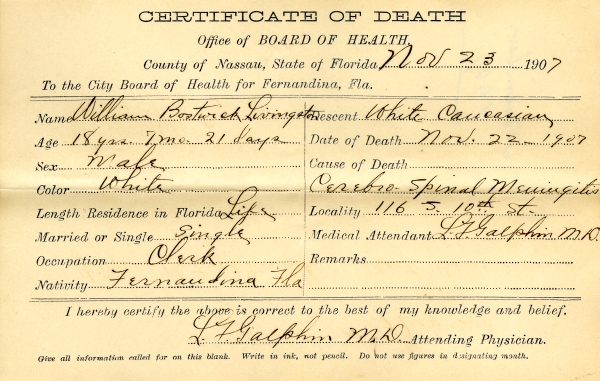 CERTIFICATE OF DEATH
Office of BOARD OF HEALTH,
County of Nassau, State of Florida, Nov 23 1907
To the City Board of Health for Fernandina, Fla.
Name William Bostwick Livingston
Age 18 yrs. 7 mo. 21 days
Sex Male
Color White
Length Residence in Florida Life
Married or Single Single
Occupation Clerk
Nativity Fernandina Fla
Descent White Caucasian
Date of Death Nov. 22 - 1907
Cause of Death
Cerebro-Spinal Meningitis
Locality 116 S. 10th St.
Medical Attendant L F Galphin M.D.
Remarks
I hereby certify the above is correct to the best of my knowledge and belief.
L. F Galphin M.D. Attending Physician.
Give all information called for on this blank. Write in ink, not pencil. Do not use figures in dsignating month.